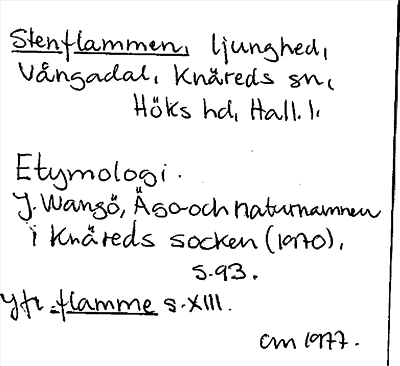 Stenflammen, ljunghed,
Vångadal, Knäreds sn,
Höks hd, Hall. l.
Etymologi.
J. Wangö, Ägo- och naturnamnen
i Knäreds socken (1970),
s. 93.
Ytt. -flamme s. XIII.
CM 1977.